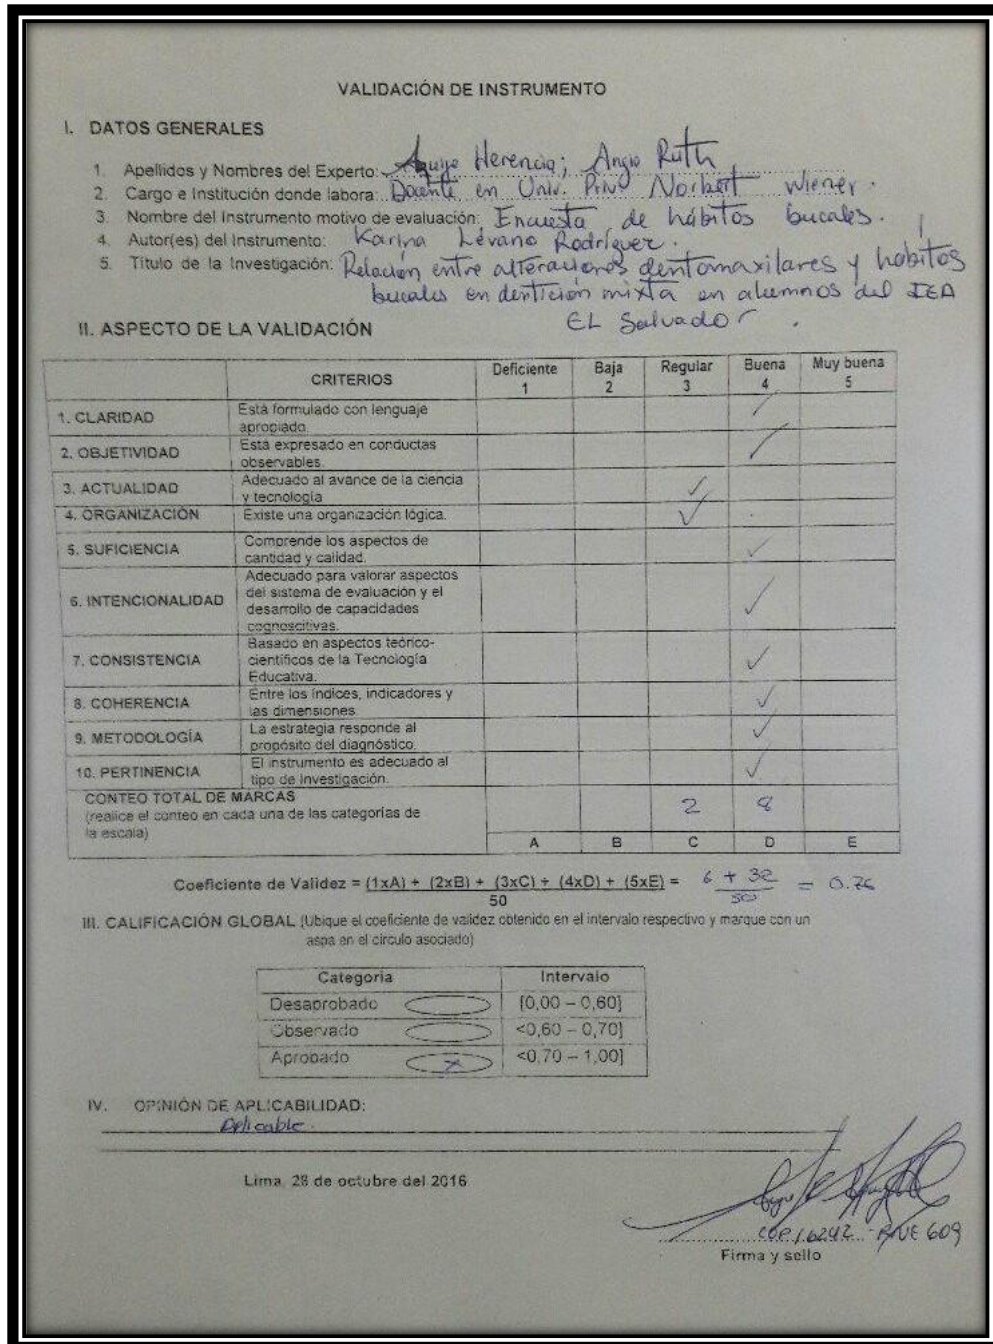 VALIDACIÓN DE INSTRUMENTO
I. DATOS GENERALES
1. Apellidos y Nombres del Experto: Herencia; Angie Ruth
2. Cargo e Institución donde labora: Docente en Univ. Priv Norbert Wiener.
3. Nombre del Instrumento motivo de evaluación: Encuesta de hábitos bucales.
4. Autor(es) del Instrumento: Karina Lévano Rodríguez.
5. Título de la Investigación: Relación entre alteraciones dentomaxilares y hábitos
bucales en dentición mixta en alumnos del IEA
EL Salvador.
II. ASPECTO DE LA VALIDACIÓN
CRITERIOS Deficiente 1 Baja 2 Regular 3 Buena 4 Muy buena 5
1. CLARIDAD Está formulado con lenguaje
apropiado.
2. OBJETIVIDAD Está expresado en conductas
observables.
3. ACTUALIDAD Adecuado al avance de la ciencia
y tecnología
4. ORGANIZACIÓN Existe una organización lógica.
5. SUFICIENCIA Comprende los aspectos de
cantidad y calidad.
6. INTENCIONALIDAD Adecuado para valorar aspectos
del sistema de evaluación y el
desarrollo de capacidades
cognoscitivas.
7. CONSISTENCIA Basado en aspectos teórico-
científicos de la Tecnología
Educativa.
8. COHERENCIA Entre los índices, indicadores y
las dimensiones.
9. METODOLOGÍA La estrategia responde al
propósito del diagnóstico.
10. PERTINENCIA El instrumento es adecuado al
tipo de investigación.
CONTEO TOTAL DE MARCAS
(realice el conteo en cada una de las categorías de
la escala) 2 8
A B C D E
Coeficiente de Validez = (1xA) + (2xB) + (3xC) + (4xD) + (5xE) = 6 + 32 = 0.76
50 50
III. CALIFICACIÓN GLOBAL (Ubique el coeficiente de validez obtenido en el intervalo respectivo y marque con un
aspa en el círculo asociado)
Categoría Intervalo
Desaprobado [0,00 – 0,60]
Observado <0,60 – 0,70]
Aprobado x <0,70 – 1,00]
IV. OPINIÓN DE APLICABILIDAD:
Aplicable.
Lima, 28 de octubre del 2016
COP 16242 - RNE 609
Firma y sello